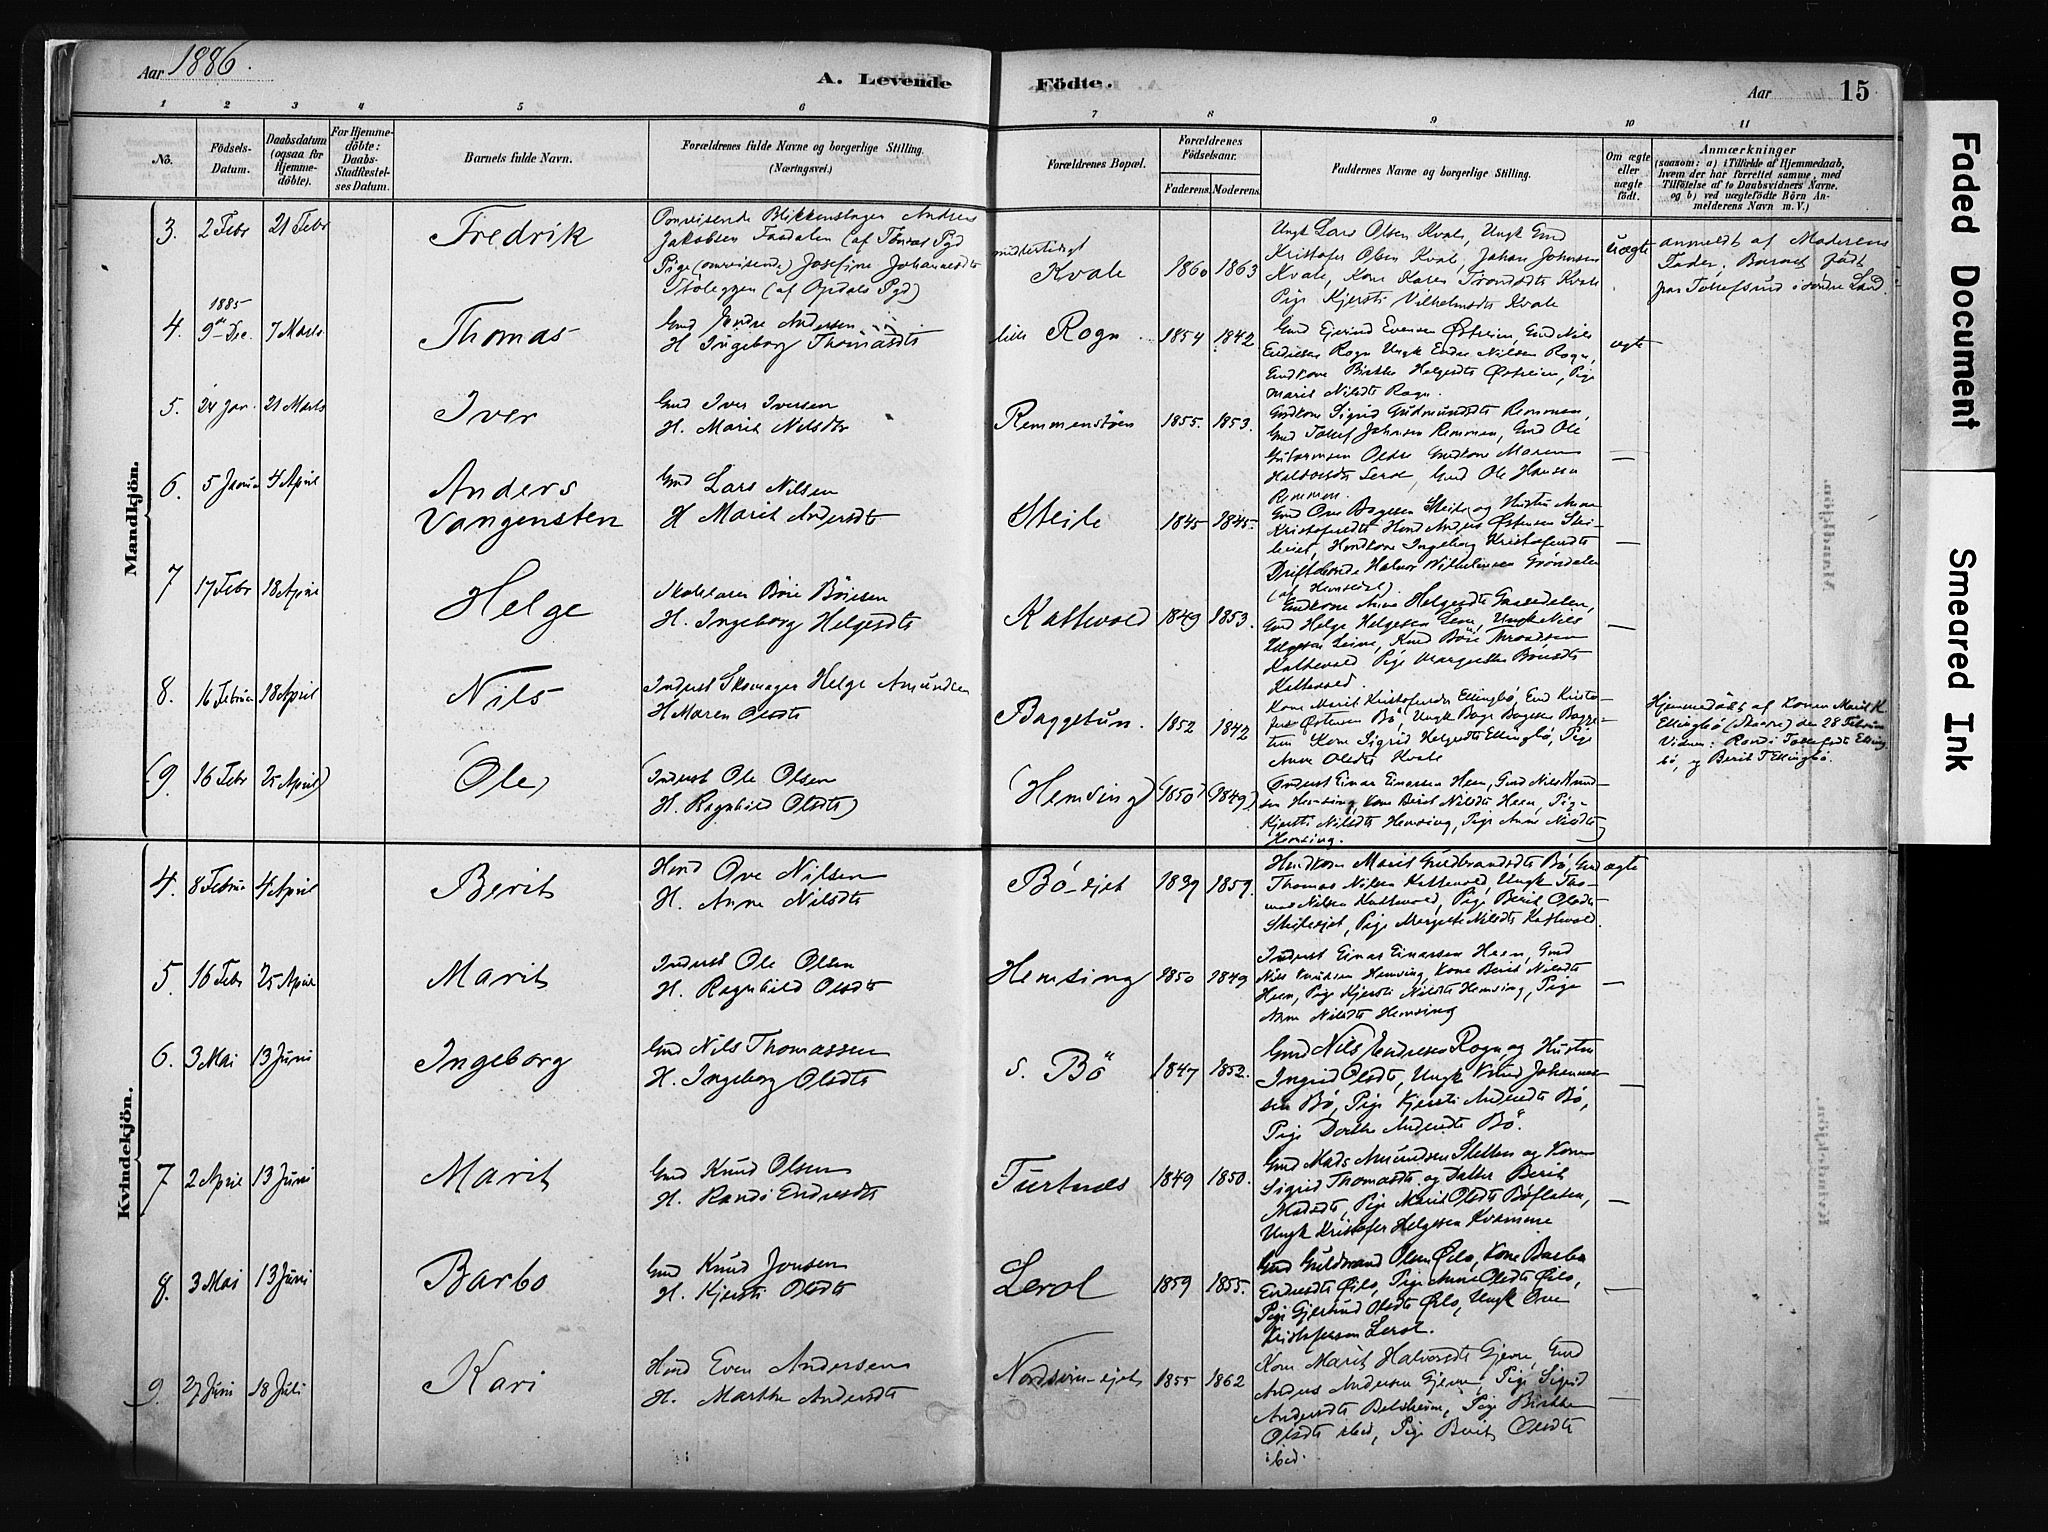 Aar 1886.
A. Levende Födte.
Aar 15
1 2 3 4 5 6 7 8 9 10 11
No.
Födsels-Datum.
Daabsdatum (ogsaa for Hjemme-döbte).
For Hjemme-döbte: Daabs-Stadfæstel-ses Datum.
Barnets fulde Navn.
Forældrenes fulde Navne og borgerlige Stilling. (Næringsvei.)
Forældrenes Bopæl.
Forældrenes Födselsaar.
Faderens. Moderens.
Faddernes Navne og borgerlige Stilling.
Om ægte eller uægte födt.
Anmærkninger
(saasom: a) i Tilfælde af Hjemmedaab,
hvem der har forrettet samme, med
Tilföielse af to Daabsvidners Navne,
og b) ved uægtefödte Börn An-
melderens Navn m. V.)
Mandkjön.
3. 2 Febr 21 Febr
Fredrik
Omreisende Blikkenslager Andreas
Jakobsen
Pige (omreisende) Josefine Johannesdtr
(af Opdals Pgd)
midlertidigt
Kvale
1860 1863
Ungk Lars Olsen Kvale, Ungk Gmd
Kristofer Olsen Kvale, Johan Johnsen
Kvale, Kone Karen Trondsdtr Kvale
Pige Kjersti Vilhelmsdtr Kvale
uægte
anmeldt af Moderens
Fader; Barnet födt
paa Tollefsrud i söndre Land.
4. 1885 9de Dec. 7 Marts
Thomas
Gmd Endre Andersen
H. Ingeborg Thomasdtr
lille Rogn
1854 1842
Gmd Ejvind Evensen Østreim, Gmd Nils
Endresen Rogn Ungk Endre Nilsen Rogn,
Gmdkone Birthe Helgesdtr Østreim, Pige
Marit Nilsdtr Rogn.
ægte
5. 24 Jan. 21 Marts
Iver
Gmd Iver Iversen
H. Marit Nilsdtr
Remmenstöen
1855. 1853.
Gmdkone Sigrid Gudmundsdtr Remmen,
Gmd Tollef Johnsen Remmen, Gmd Ole
Guttormsen Gmdkone Maren
Halvorsdtr Gmd Ole Hansen
Remmen.
—
6. 5 Janua 4 April
Anders
Vangensten
Gmd Lars Nilsen
H Marit Andersdtr
Steile
1845 1845.
Gmd Ove Bagesen Steile og Hustru Anne
Kristofersdtr Hmd Anders Østensen
Hmdkone Ingeborg Kristofersdtr
Driftebonde Halvor Vilhelmsen Gröndalen
(af Hemsedal)
—
7 17 Febr 18 April
Helge
Skolelærer Böie Böiesen
H. Ingeborg Helgesdtr
Kattevold
1849 1853.
Gmdkone Anne Helgesdtr Gaasedalen,
Gmd Helge Helgesen Leine, Ungk Nils
Helgesen Leine, Knud Böie Trondsen
Kattevold Pige Margrethe Böiesdtr
Kattevold.
—
8. 16 Februa 18 April
Nils
Inderst Skomager Helge Amundsen
H Maren Olesdtr
Baggetun.
1852 1842
Kone Marit Kristofersdtr Ellingbö, Gmd Kristo-
fer Østensen Bö, Ungk Bage Bagesen Bagge-
tun Kone Sigrid Helgesdtr Ellingbö, Pige
Anne Olsdtr Kvale
Hjemmedöbt af Konen Marit K
Ellingbö den 28 Februa
Vidner: Randi Tollefsdtr Elling
bö, og Berit T Ellingbö.
(9. 16 Febr 25 April)
Ole)
(Inderst Ole Olsen
H. Ragnhild Olsdtr)
(Hemsing)
(1850) (1849)
(Inderst Einar Einarsen Heen, Gmd Nils Knud-
sen Hemsing, Kone Berit Nilsdtr Heen, Pige
Kjersti Nilsdtr Hemsing, Pige Anne Nilsdtr
Hemsing.
Kvindekjön.
4. 8 Februa 4 April
Berit
Hmd Ove Nilsen
H. Anne Nilsdtr
Bö-ejet
1839 1859.
Hmdkone Marit Guldbrandsdtr Bö, Gmd
Thomas Nilsen Kattevold, Ungk Tho-
mas Nilsen Kattevold, Pige Berit Olsdtr
Steileejet, Pige Margrete Nilsdtr Kattevold.
ægte
5. 16 Febr 25 April
Marit
Inderst Ole Olsen
H. Ragnhild Olsdtr
Hemsing
1850 1849
Inderst Einar Einarssen Heen, Gmd
Nils Knudsen Hemsing, Kone Berit Nilsdtr
Heen, Pige Kjersti Nilsdtr Hemsing, Pige
Anne Nilsdtr Hemsing
—
6. 3 Mai 13 Juni
Ingeborg
Gmd Nils Thomassen
H. Ingeborg Olsdtr
s. Bö
1847 1852.
Gmd Nils Endresen Rogn og Hustru
Ingrid Olsdtr, Ungk Knud Johannes-
sen Bö, Pige Kjersti Andersdtr Bö,
Pige Dorthe Andersdtr Bö.
—
7 2 April 13 Juni
Marit
Gmd Knud Olsen
H. Randi Endresdtr
Turtnes
1849 1850.
Gmd Mads Amundsen Sletten og Kone
Sigrid Thomasdtr og Datter Berit
Madsdtr, Pige Marit Olsdtr Böflaten,
Ungk Kristofer Helgesen Kvamme
—
8. 3 Mai 13 Juni
Barbo
Gmd Knud Jonsen
H. Kjersti Olsdtr
Lerol
1859 1855.
Gmd Guldbrand Olsen Øilo, Kone Barbo
Endresdtr Øilo, Pige Anne Olsdtr Øilo,
Pige Gjertrud Olsdtr Øilo, Ungk Ove
Kristofersen Lerol.
—
9. 27 Juni 18 Juli
Kari
Hmd Even Andersen
H. Marthe Andersdtr
1855 1862
Kone Marit Halvorsdtr Gjevre, Gmd
Anders Andersen Gjevre, Pige Sigrid
Andersdtr Belsheim, Pige Birthe
Olsdtr sted, Pige Berit Olsdtr
ibid.
—
Faded Document
Smeared Ink